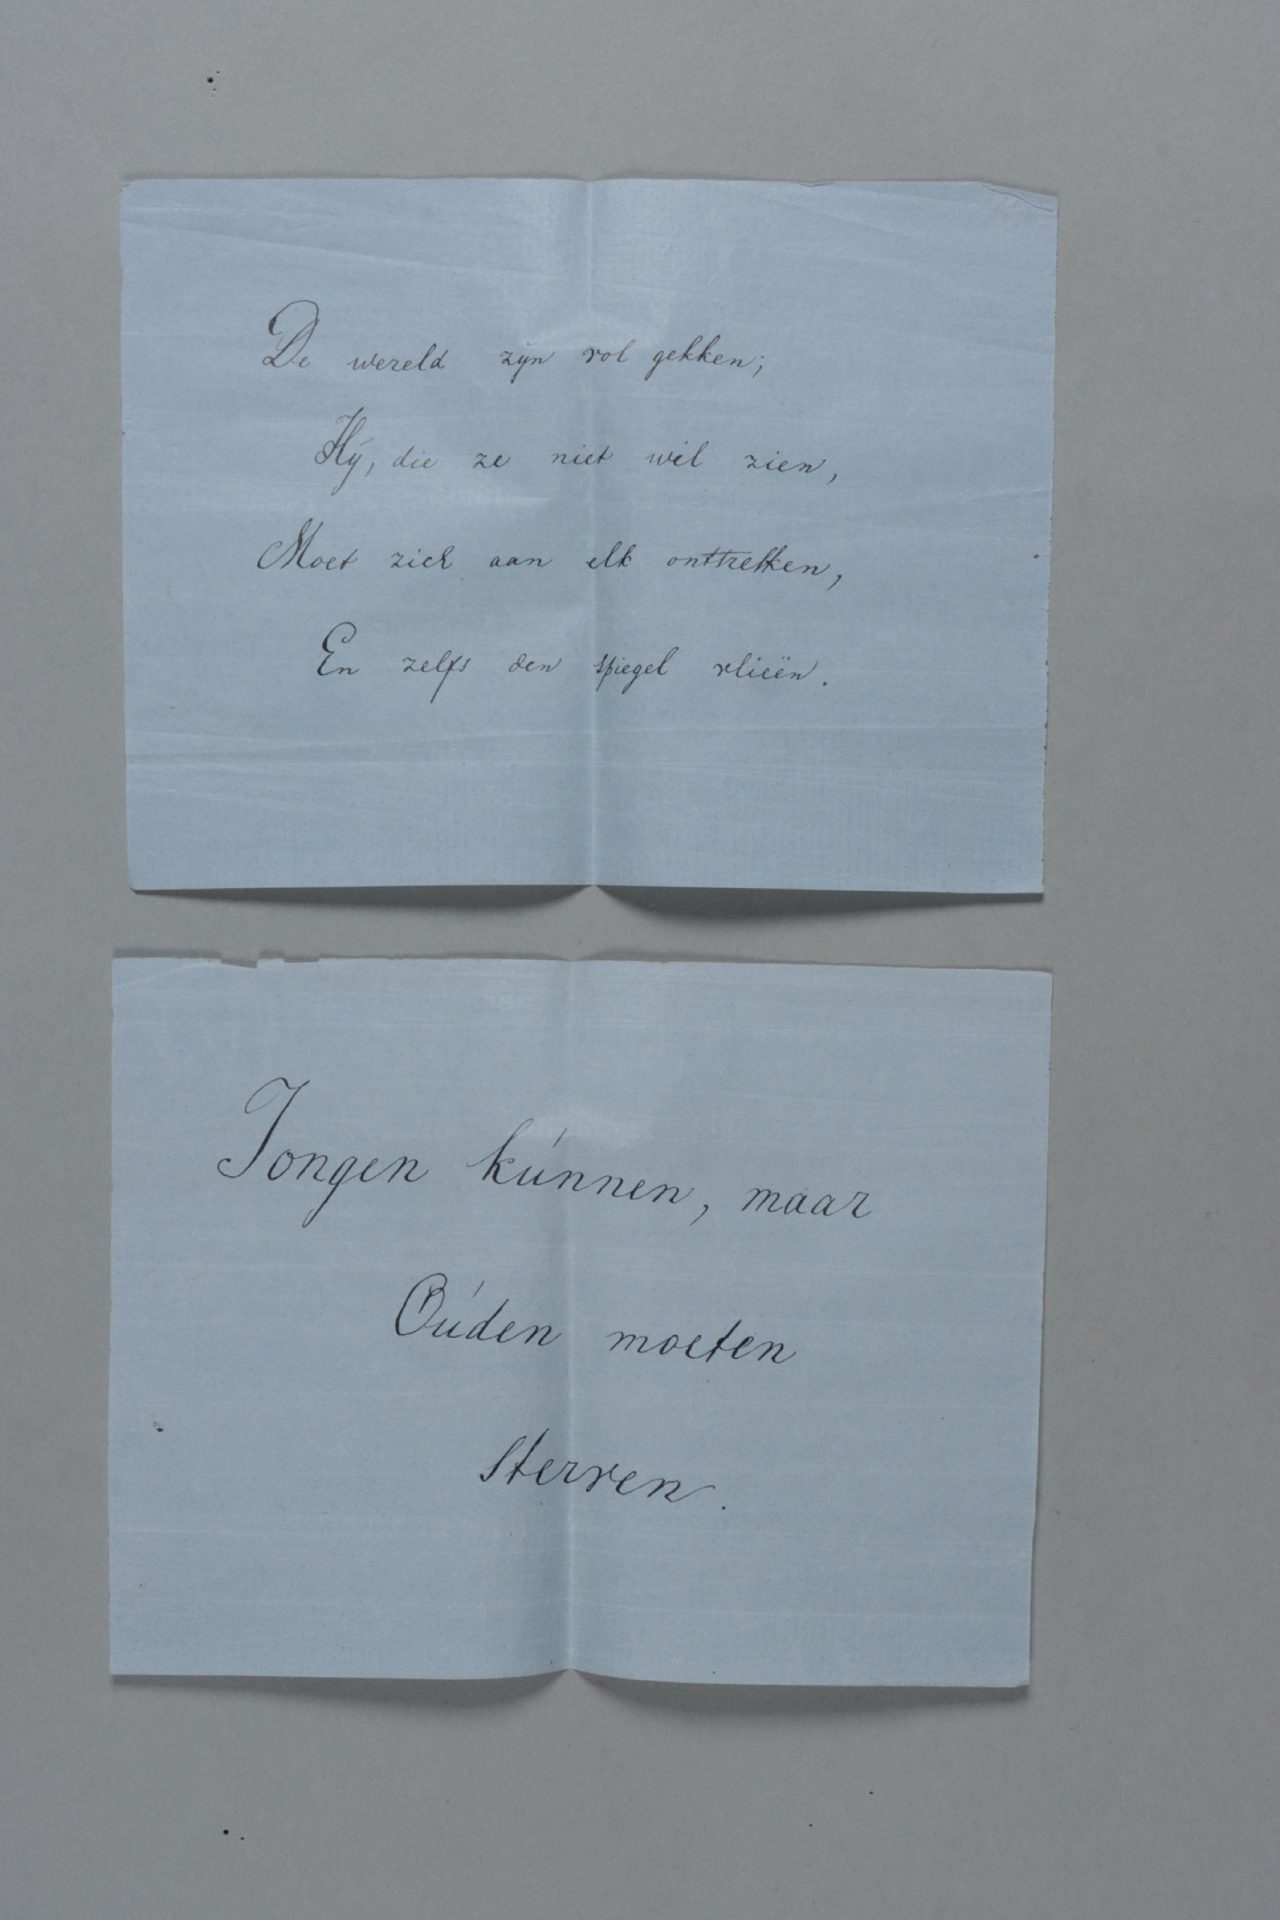 De wereld zijn vol gekken;
Hij, die ze niet wil zien,
Moet zich aan elk onttrekken,
En zelfs den spiegel vlieën.
Jongen kúnnen, maar
Oúden moeten
sterven.